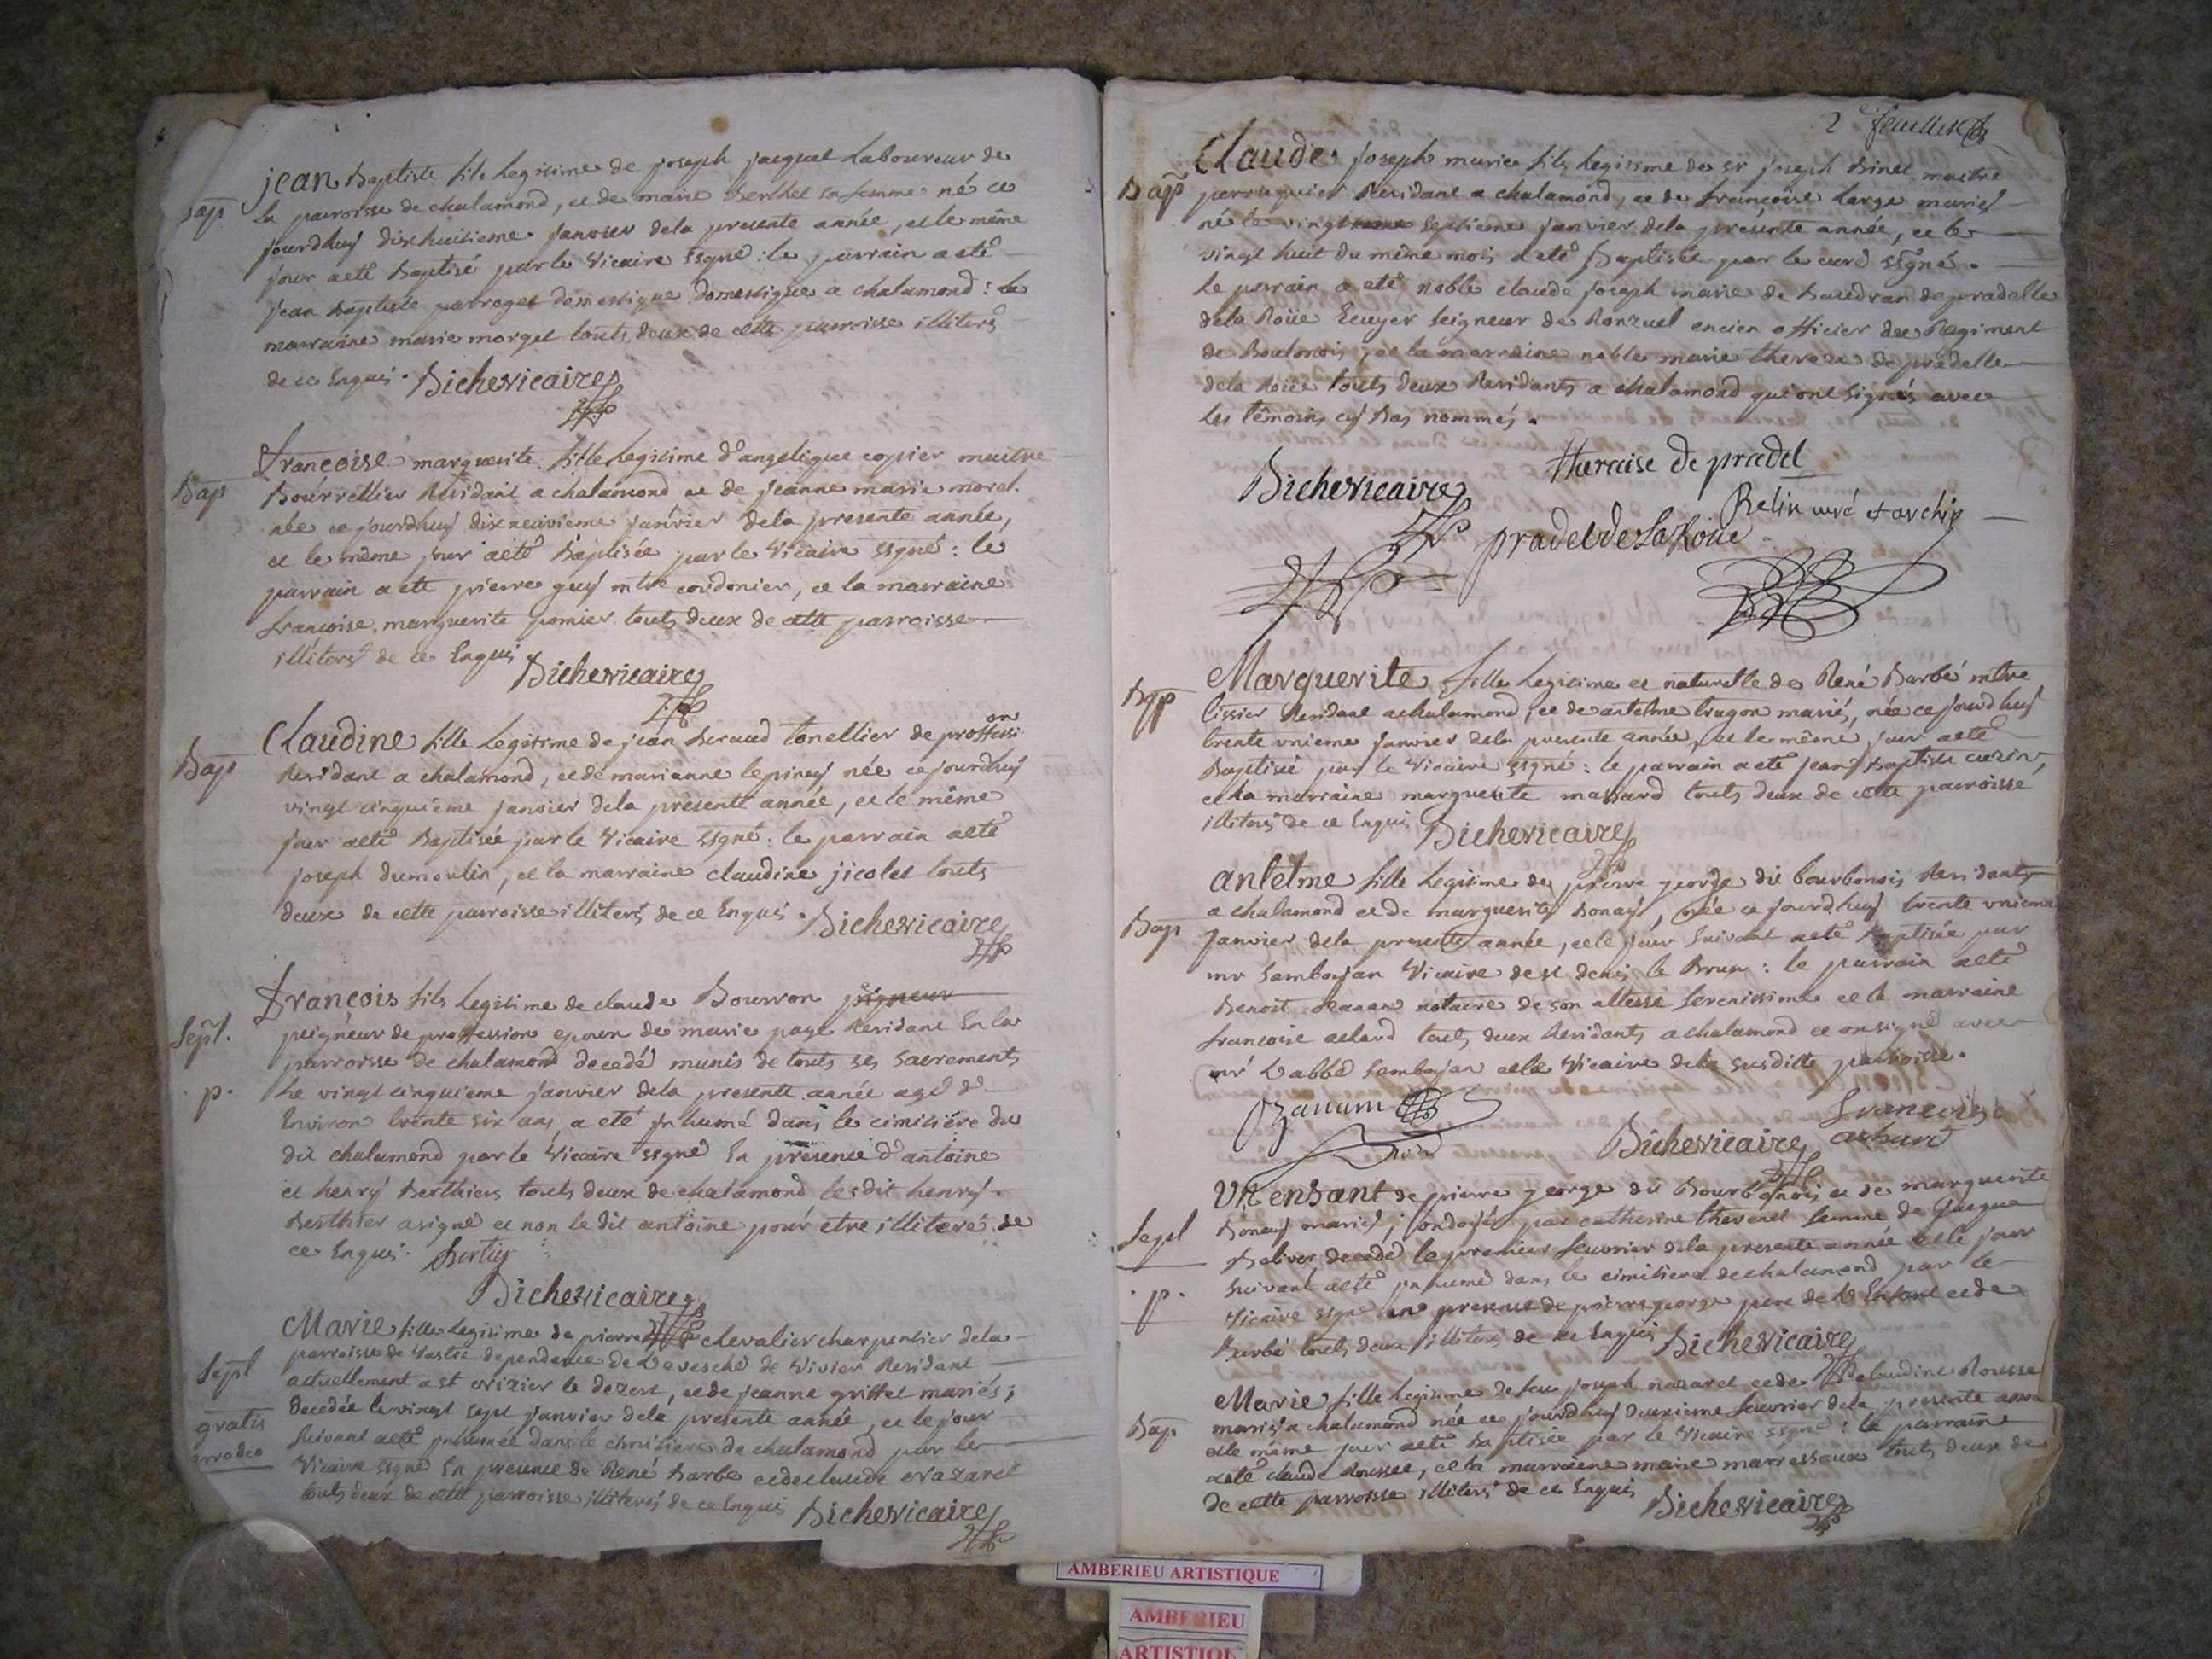 Bap
jean Baptiste fils Legitime de joseph jacquet Laboureur de
la parroisse de chalamond, et de marie Berthet sa femme né ce
jourdhuy dixhuitieme janvier dela presente année, et le même
jour aeté Baptisé par le vicaire ssgné : le parrain a eté
jean Baptiste parroget domestique domestique a chalamond : la
marraine marie morget touts deux de cette parroisse illiterés
de ce Enquis. Bichevicaire
Bap
françoise marguerite fille Legitime d'angelique copier maitre
Bourrellier Residant a chalamond et de jeanne marie morel.
née ce jourdhuy dixneuvieme janvier dela presente année,
et le même jour aeté Baptisée par le vicaire ssgné : le
parrain a eté pierre guy mtre cordonier, et la marraine
francoise marguerite pomier touts deux de cette parroisse
illiterés de ce Enquis Bichevicaire
Bap
Claudine fille Legitime de jean Beraud tonellier de proffession
Residant a chalamond, et de marianne lepiney née ce jourdhuy
vingt cinquieme janvier dela presente année, et le même
jour aeté Baptisée par le vicaire ssgné : le parrain aeté
joseph dumoulin, et la marraine claudine jicolet touts
deux de cette parroisse illiterés de ce Enquis. Bichevicaire
Sept.
p.
françois fils Legitime de claude Bourron pigneur
peigneur de proffession epoux de marie page Residant En la
parroisse de chalamond decedé munis de touts ses sacrements
Le vingt cinquieme janvier dela presente année agé d'
Environ trente six ans, a eté jnhumé dans le cimitiere du
dit chalamond par le vicaire ssgné En presence d'antoine
et henry Berthiers touts deux de chalamond lesdit henry.
Berthier asigné et non le dit antoine pour etre illiteré de
ce Enquis. Bertier
Bichevicaire
Sept
gratis
pro deo
Marie fille Legitime de pierre chevalier charpentier dela
parroisse de dependance de L'eveché de vivier Residant
actuellement a st nizier le dezert, et de jeanne griffet mariés ;
decedée le vingt sept janvier dela presente année, et le jour
suivant aeté jnhumée dans le cimitiere de chalamond par le
vicaire ssgné En presence de René Barbe et de claude nazaret
touts deux de cette parroisse illiterés de ce Enquis Bichevicaire
2e feuillet
Bap
Claude joseph marie fils Legitime de sr joseph Binet maitre
perruquier Residant a chalamond, et de françoise Large mariés
né le vingt septieme janvier dela presente année, et le
vingt huit du même mois aeté Baptisé par le curé ssgné.
Le parrain a eté noble claude joseph marie de Baudran depradelle
dela Roüe Ecuyer seigneur de Ronzuel encien officier de Regiment
de Boulonois, et la marraine noble marie therese de pradelle
dela Roüe touts deux Residants a chalamond qui ont signés avec
Les têmoins cy Bas nommés.
Bichevicaire
theraise de pradel
Relin curé et archip
pradel de la Roüe
Bap
Marguerite fille Legitime et naturelle de René Barbé mtre
tissier Residant achalamond, et de antelme trugon mariés, née ce jourdhuy
trente unieme janvier dela presente année, et le même jour aeté
Baptisée par le vicaire ssgné : le parrain a eté jean Baptiste cuzin,
et la marraine marguerite massard touts deux de cette parroisse
illiterés de ce Enquis Bichevicaire
Bap
antelme fille Legitime de pierre george dit bourbonois Residants
a chalamond et de marguerite Bonay, née ce jourd.huy trente unieme
janvier dela presente année, et le jour suivant aeté Baptisée par
mr Sambojan vicaire de st denis le : le parrain aeté
Benoit notaire de son altesse serenissime et la marraine
francoise touts deux Residants achalamond et on signé avec
mr L'abbé Sambojan et le vicaire dela susditte parroisse.
Ozanam
francoise
Bichevicaire
Sept
p.
Un enfant de pierre george dit Bourbonois et de marguerite
Bonay mariés, ondoyé par catherine thevenet femme de
decedé le premier feuvrier dela presente année et le jour
suivant aeté jnhumé dans le cimitiere dechalamond par le
vicaire ssgné en presence de pierre george pere de L'Enfant et de
Barbé touts deux illiterés de ce Enquis Bichevicaire
Bap
Marie fille Legitime de feu joseph nazaret et de claudine Rousset
mariés a chalamond née ce jourdhuy deuxieme feuvrier dela presente année
et le même jour aeté Baptisée par le vicaire ssgné : le parrain
aeté claude Rousset, et la marraine marie touts deux de
de cette parroisse illiterés de ce Enquis Bichevicaire
AMBERIEU ARTISTIQUE
AMBERIEU
ARTISTIQU